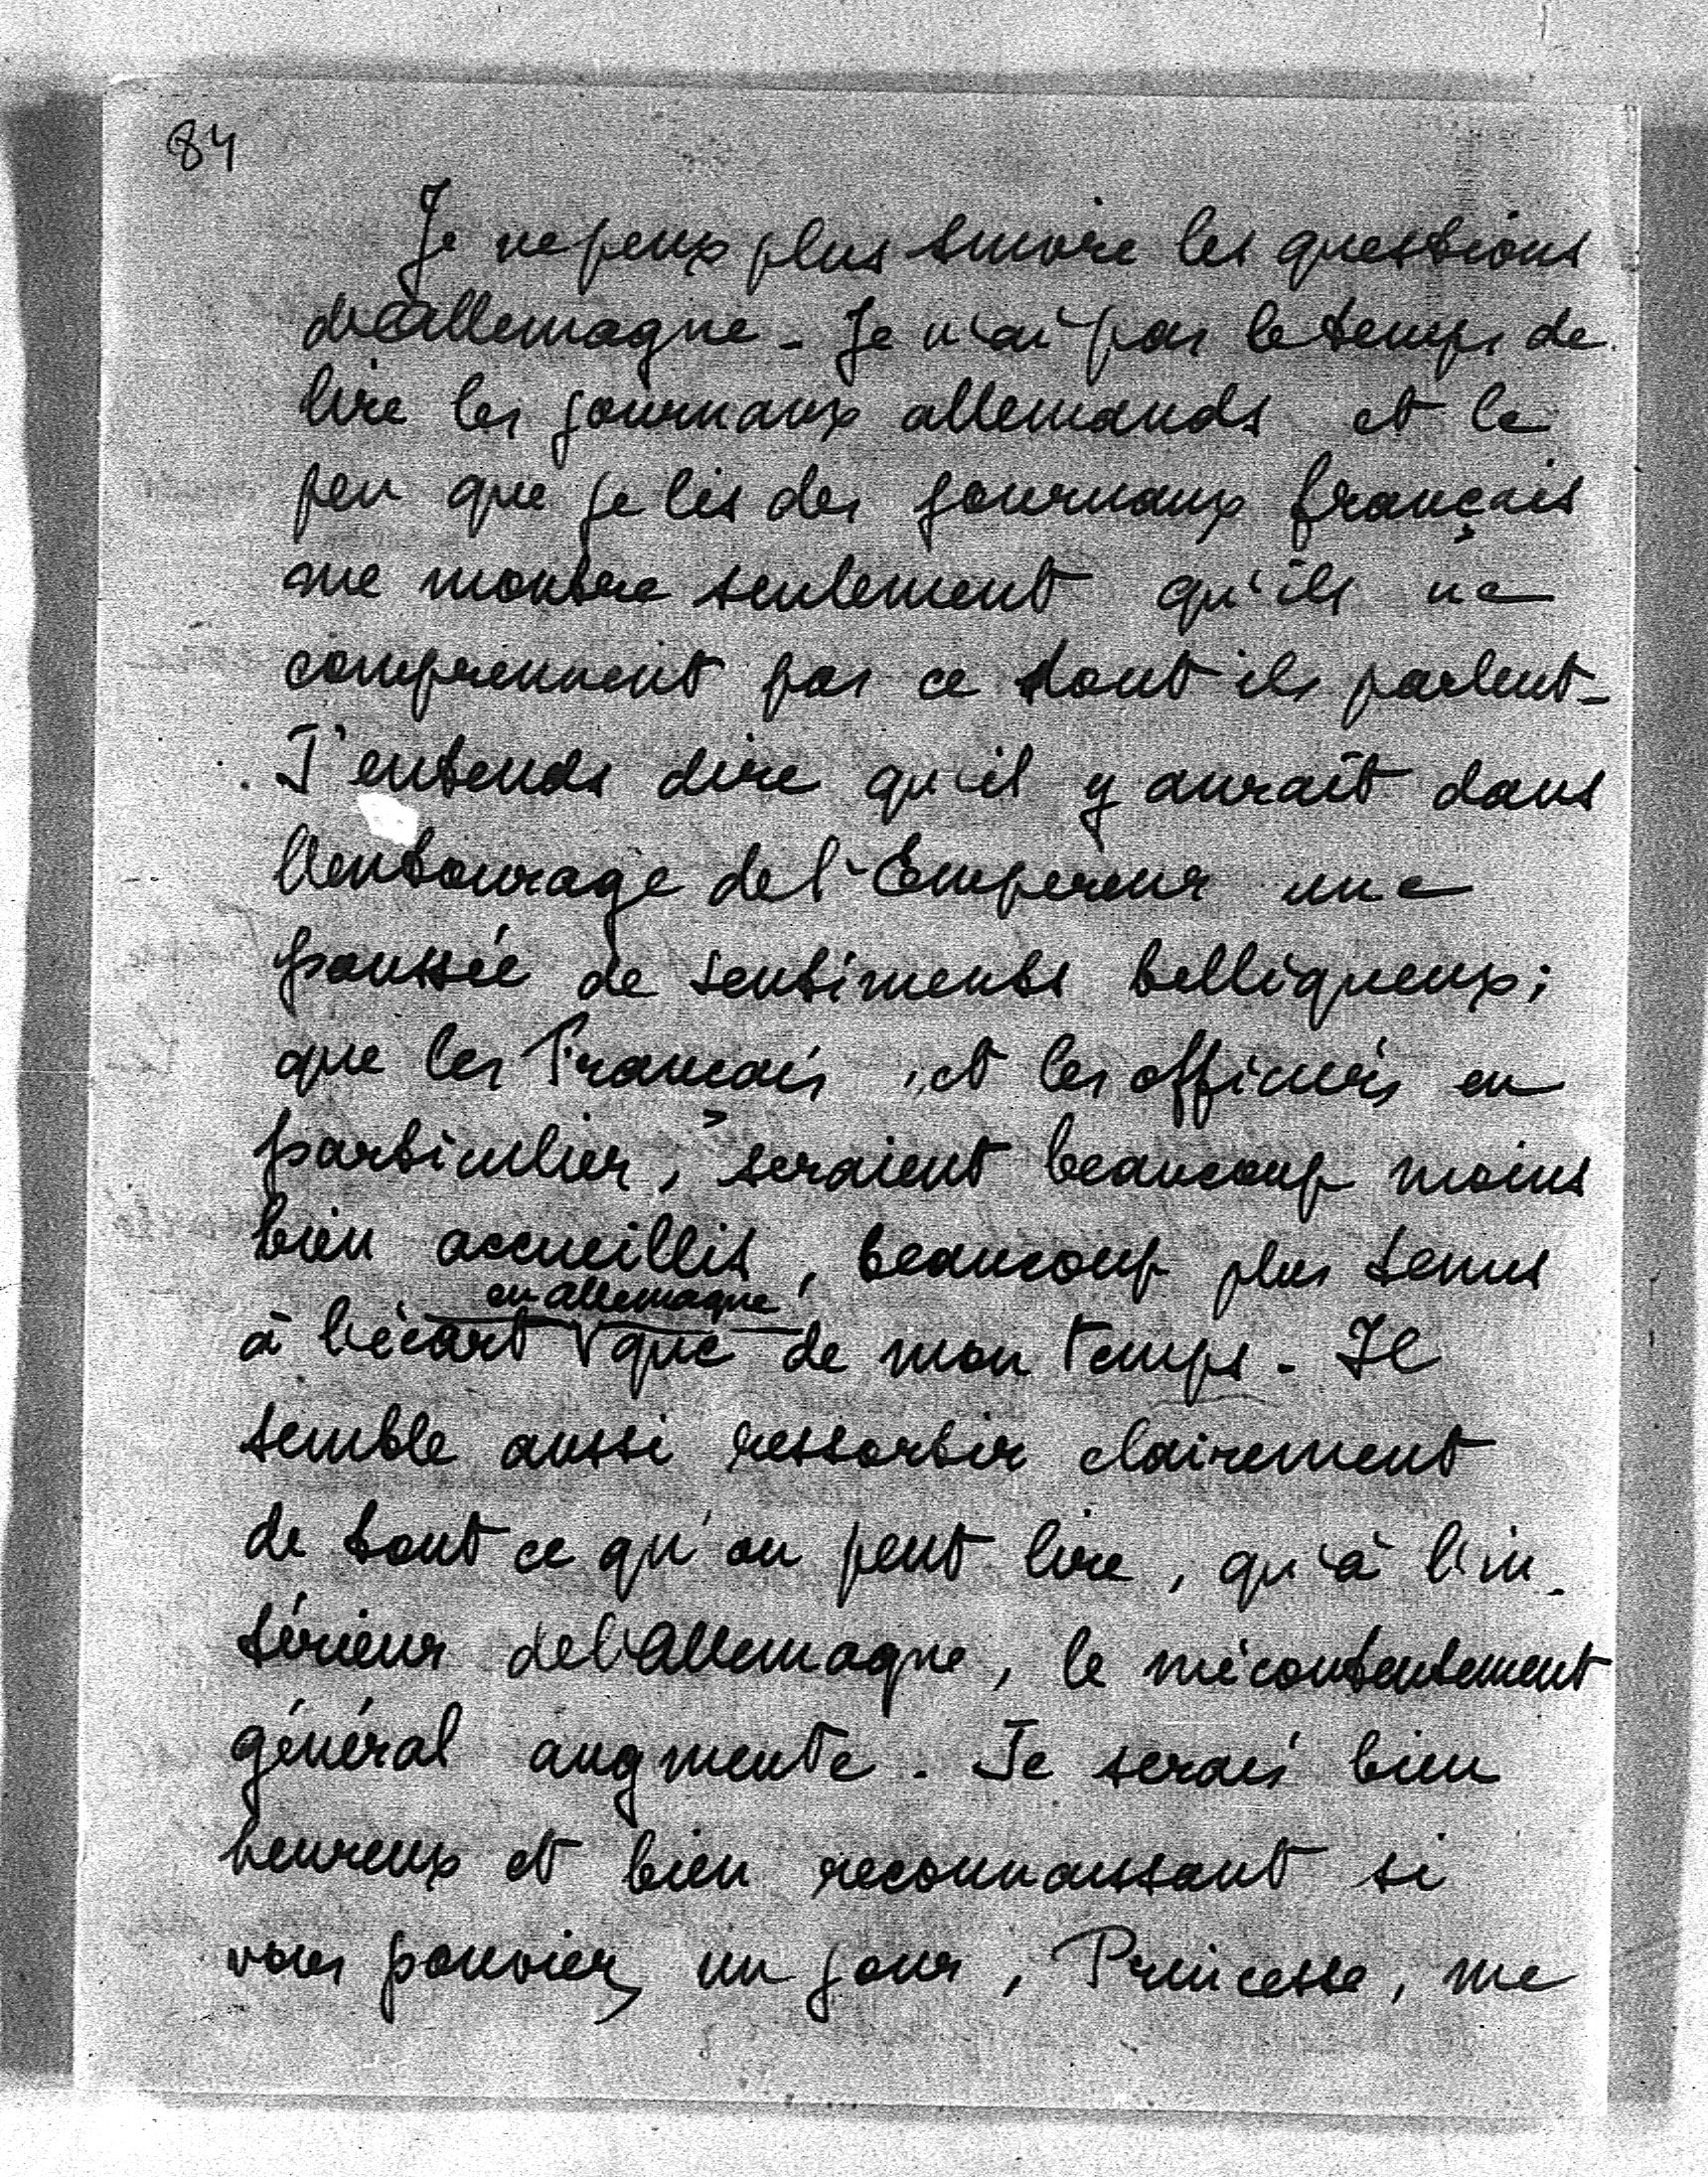 84
Je ne peux plus suivre les questions
d'Allemagne - Je n'ai pas le temps de
lire les journaux allemands et le
peu que je lis des journaux français
me montre seulement qu'ils ne
comprennent pas ce dont ils parlent -
J'entends dire qu'il y aurait dans
l'entourage de l'Empereur une
poussée de sentiments belliqueux ;
que les Français, et les officiers en
particulier, seraient beaucoup moins
bien accueillis, beaucoup plus tenus
en Allemagne
à l'écart que de mon temps. Il
semble aussi ressortir clairement
de tout ce qu'on peut lire, qu'à l'in-
térieur de l'Allemagne, le mécontentement
général augmente. Je serais bien
heureux et bien reconnaissant si
vous pouviez un jour, Princesse, me